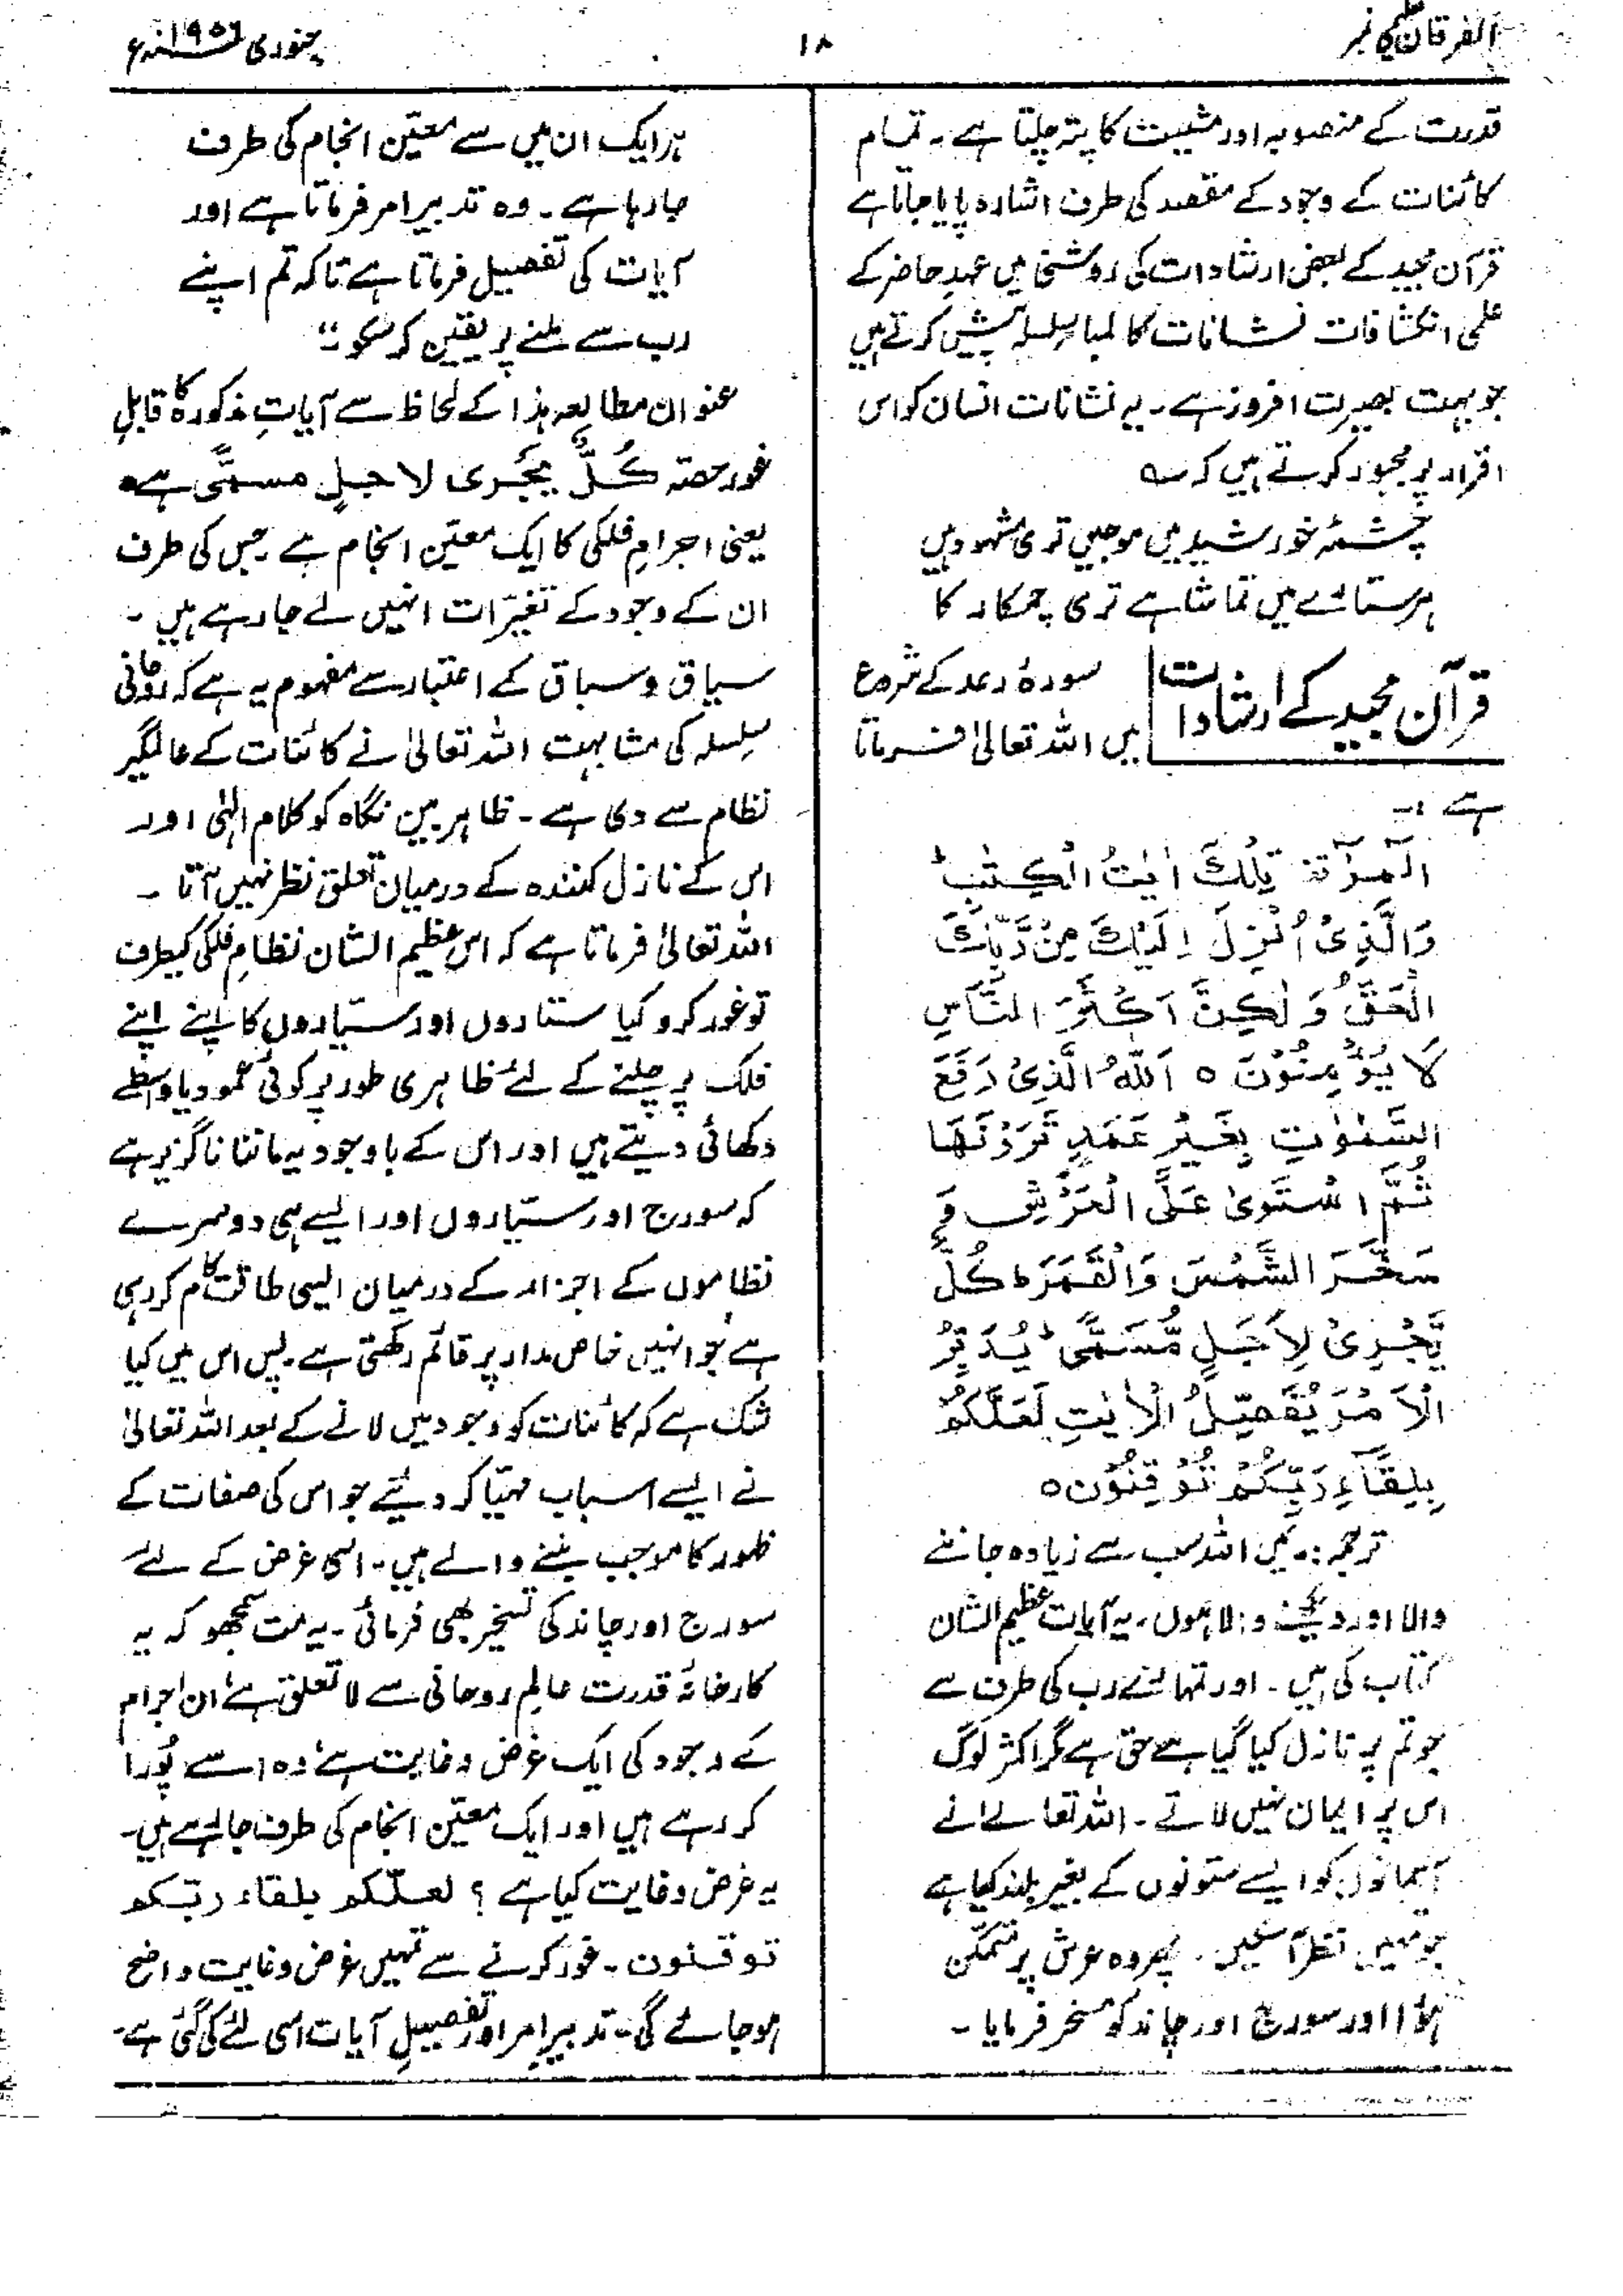 الفرقان علمی نمبر
۱۸
جنوری ۱۹۵۶ء
قدرت کے منصوبہ اور مشیت کا پتہ چلتا ہے۔ تمام
کائنات کے وجود کے مقصد کی طرف اشارہ پایا جاتا ہے
قرآن مجید کے بعض ارشادات کی روشنی میں عہدِ حاضر کے
علمی انکشافات نشانات کا لمبا سلسلہ پیش کرتے ہیں
جو بہت بصیرت افروز ہے۔ یہ نشانات انسان کو اس
اقرار پر مجبور کرتے ہیں کہ ؎
چشمۂ خورشید میں موجیں تری مشہود ہیں
ہر ستارے میں تماشا ہے تری چمکار کا
قرآن مجید کے ارشادات
سورۂ رعد کے شروع
میں اللہ تعالیٰ فرماتا
ہے :۔
الٓمّٓرٰ تِلْكَ اٰيٰتُ الْكِتٰبِ ؕ
وَالَّذِىْ اُنْزِلَ اِلَيْكَ مِنْ رَّبِّكَ
الْحَقُّ وَلٰكِنَّ اَكْثَرَ النَّاسِ
لَا يُؤْمِنُوْنَ ○ اَللّٰهُ الَّذِىْ رَفَعَ
السَّمٰوٰتِ بِغَيْرِ عَمَدٍ تَرَوْنَهَا
ثُمَّ اسْتَوٰى عَلَى الْعَرْشِ وَ
سَخَّرَ الشَّمْسَ وَالْقَمَرَ ؕ كُلٌّ
يَّجْرِىْ لِاَجَلٍ مُّسَمًّى ؕ يُدَبِّرُ
الْاَمْرَ يُفَصِّلُ الْاٰيٰتِ لَعَلَّكُمْ
بِلِقَآءِ رَبِّكُمْ تُوْقِنُوْنَ ○
ترجمہ:۔ میں اللہ سب سے زیادہ جاننے
والا اور دیکھنے والا ہوں۔ یہ آیات عظیم الشان
کتاب کی ہیں۔ اور تمہارے رب کی طرف سے
جو تم پر نازل کیا گیا ہے حق ہے مگر اکثر لوگ
اس پر ایمان نہیں لاتے۔ اللہ تعالےٰ نے
آسمانوں کو ایسے ستونوں کے بغیر بلند کیا ہے
جو تمہیں نظر آسکیں۔ پھر وہ عرش پر متمکن
ہؤا اور سورج اور چاند کو مسخر فرمایا۔
ہر ایک ان میں سے معیّن انجام کی طرف
جا رہا ہے۔ وہ تدبیر امر فرماتا ہے اور
آیات کی تفصیل فرماتا ہے تاکہ تم اپنے
رب سے ملنے پر یقین کر سکو۔“
عنوان مطالعہ ہذا کے لحاظ سے آیاتِ مذکورہ کا قابلِ
غور حصّہ كُلٌّ يَجْرى لاجلٍ مسمًّى ہے۔
یعنی اجرامِ فلکی کا ایک معیّن انجام ہے جس کی طرف
ان کے وجود کے تغیّرات انہیں لے جا رہے ہیں۔
سیاق و سباق کے اعتبار سے مفہوم یہ ہے کہ روحانی
سلسلہ کی مشابہت اللہ تعالیٰ نے کائنات کے عالمگیر
نظام سے دی ہے۔ ظاہر بین نگاہ کو کلام الٰہی اور
اس کے نازل کنندہ کے درمیان تعلق نظر نہیں آتا۔
اللہ تعالیٰ فرماتا ہے کہ اس عظیم الشان نظامِ فلکی کیطرف
تو غور کرو کیا ستاروں اور سیّاروں کا اپنے اپنے
فلک پر چلنے کے لئے ظاہری طور پر کوئی عمود یا واسطے
دکھائی دیتے ہیں اور اس کے باوجود یہ ماننا ناگزیر ہے
کہ سورج اور سیّاروں اور ایسے ہی دوسرے
نظاموں کے اجزاء کے درمیان ایسی طاقت کام کر رہی
ہے جو انہیں خاص مدار پر قائم رکھتی ہے۔ پس اس میں کیا
شک ہے کہ کائنات کو وجود میں لانے کے بعد اللہ تعالیٰ
نے ایسے اسباب مہیّا کر دیئے جو اس کی صفات کے
ظہور کا موجب بننے والے ہیں۔ اسی غرض کے لئے
سورج اور چاند کی تسخیر بھی فرمائی۔ یہ مت سمجھو کہ یہ
کارخانۂ قدرت عالمِ روحانی سے لا تعلق ہے، ان اجرام
کے وجود کی ایک غرض و غایت ہے، وہ اسے پُورا
کر رہے ہیں اور ایک معیّن انجام کی طرف جا رہے ہیں۔
یہ غرض و غایت کیا ہے؟ لعلّكم بلقاء ربّكم
توقنون۔ غور کرنے سے تمہیں غرض و غایت واضح
ہو جائے گی۔ تدبیرِ امر اور تفصیلِ آیات اسی لئے کی گئی ہے۔